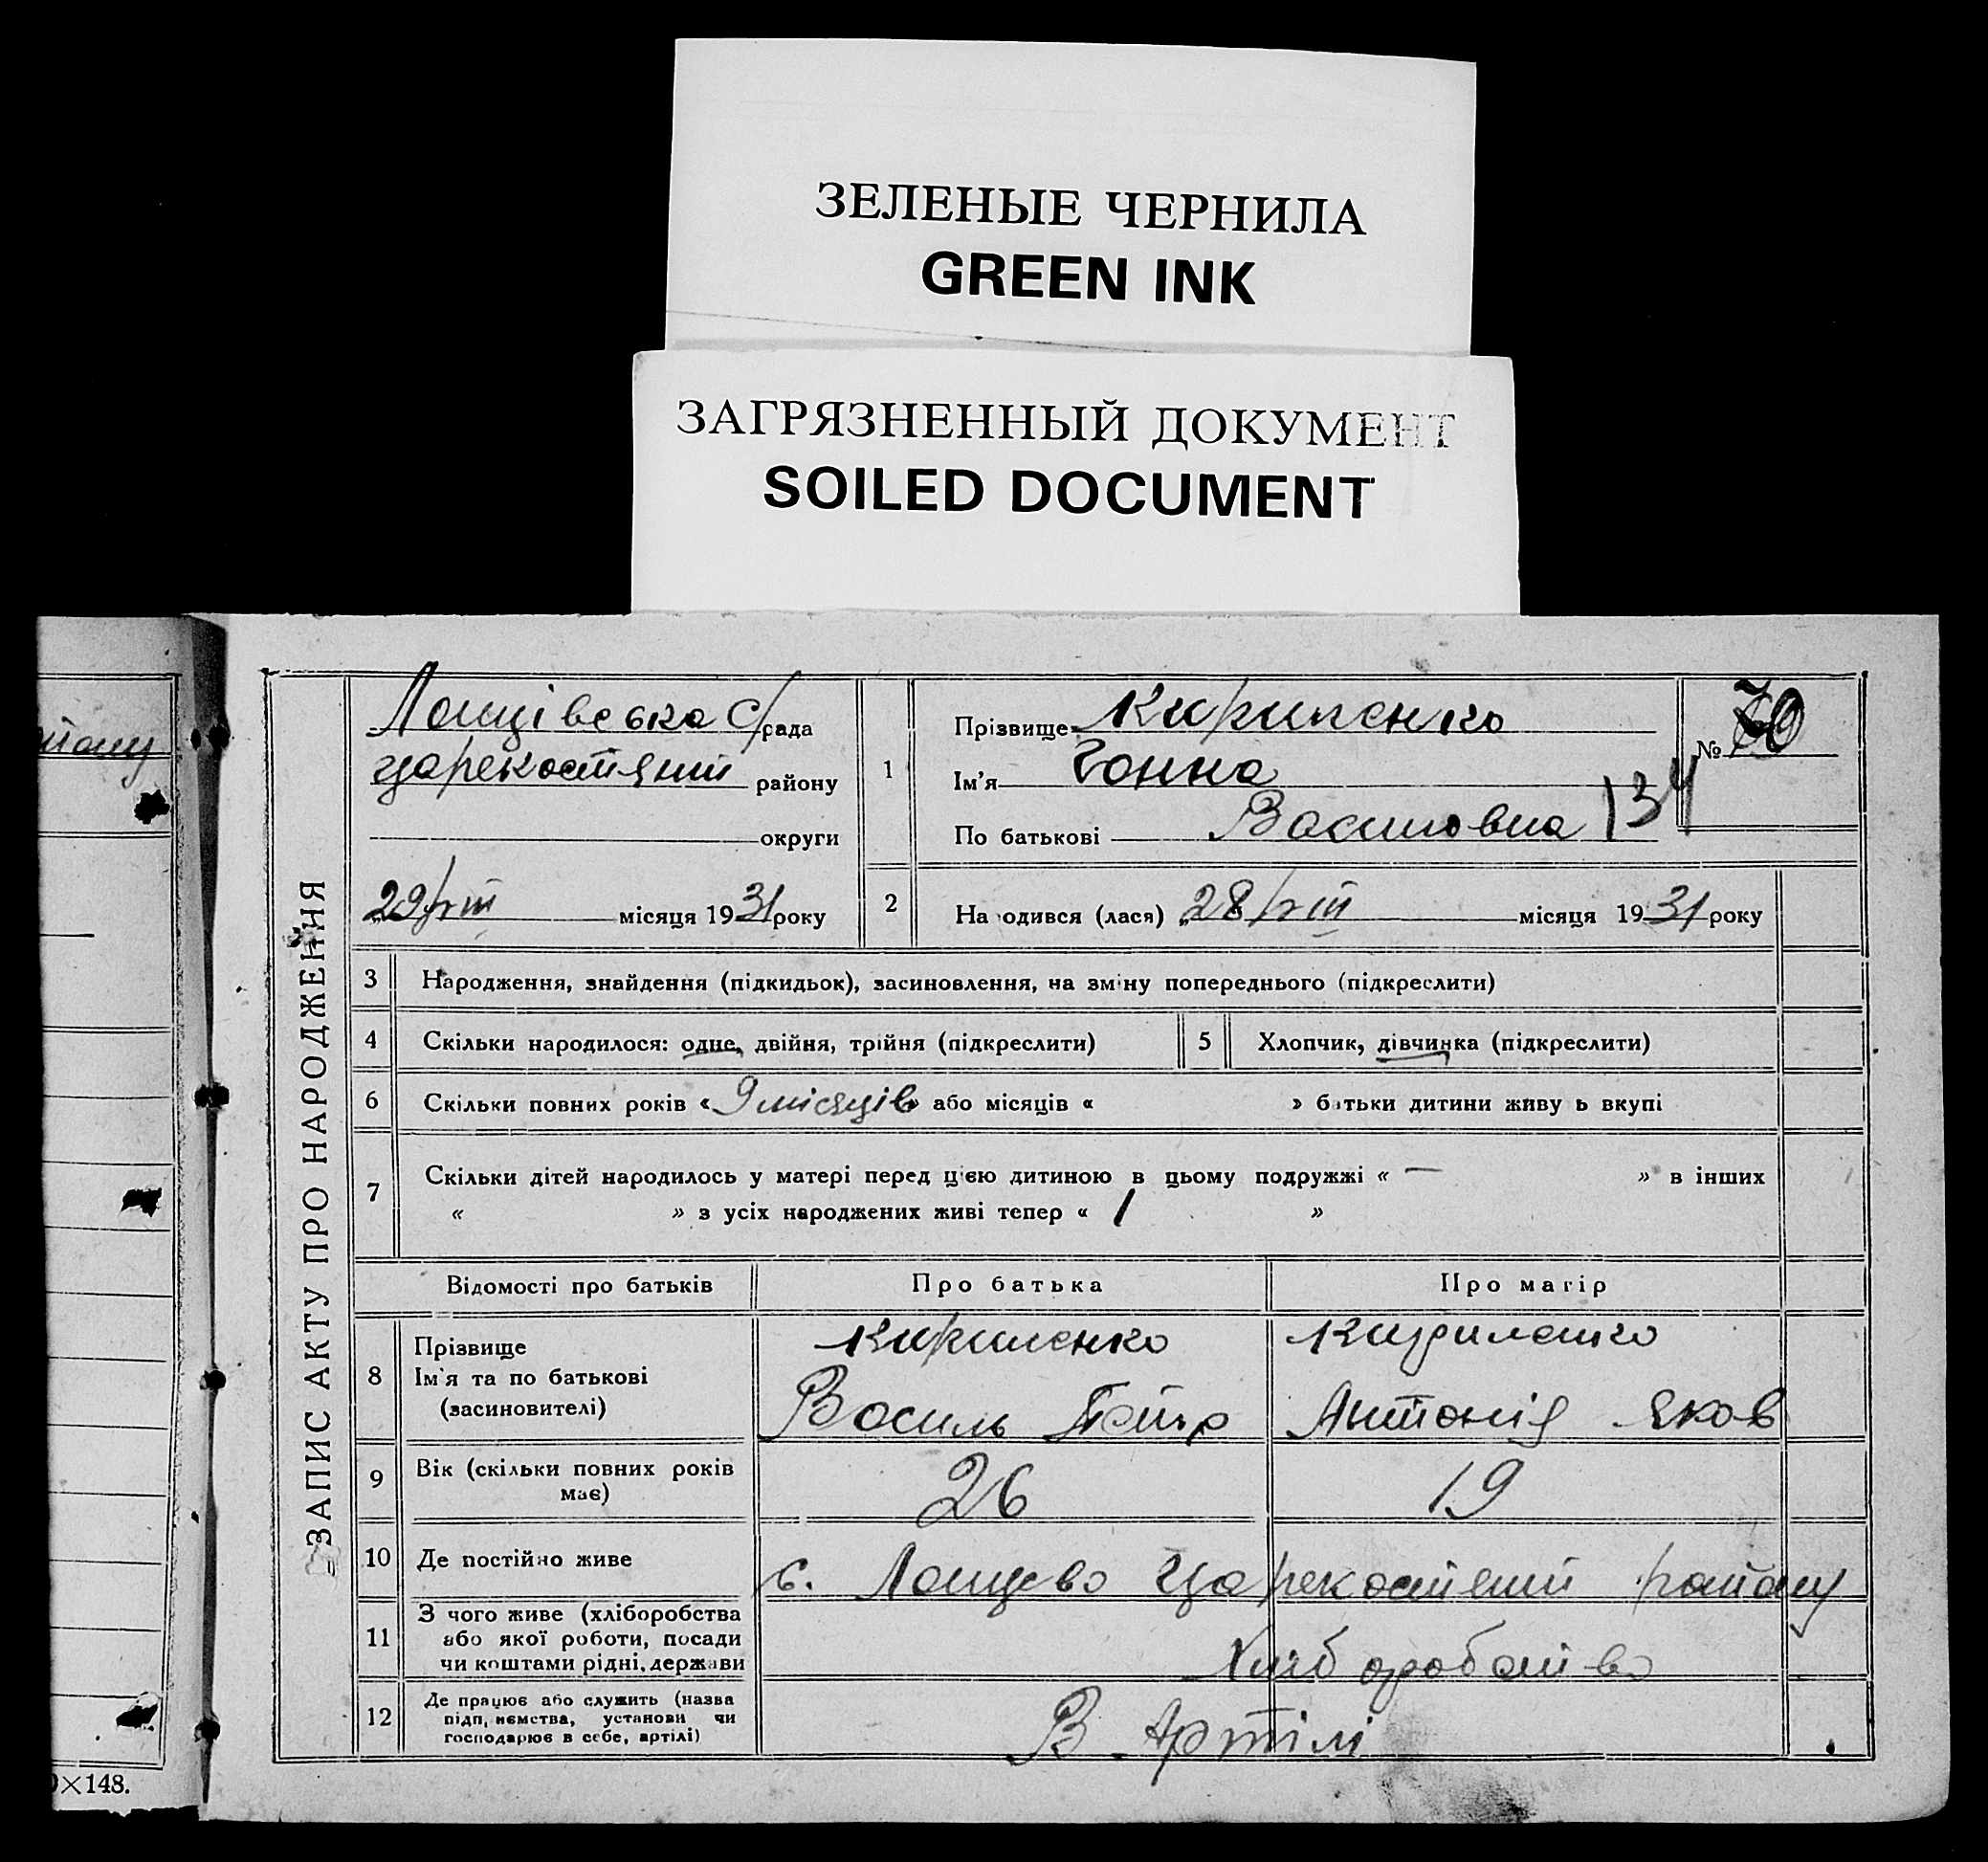 ЗЕЛЕНЫЕ ЧЕРНИЛА
GREEN INK
ЗАГРЯЗНЕННЫЙ ДОКУМЕНТ
SOILED DOCUMENT
ЗАПИС АКТУ ПРО НАРОДЖЕННЯ
Лощівська С/рада
району
округи
29/VIII місяця 1931 року
1 Прізвище Кириленко
Ім'я Ганна
По батькові Василовна
№ 70
134
2 Народився (лася) 28/VIII місяця 1931 року
3 Народження, знайдення (підкидьок), засиновлення, на зміну попереднього (підкреслити)
4 Скільки народилося: одне, двійня, трійня (підкреслити) 5 Хлопчик, дівчинка (підкреслити)
6 Скільки повних років « 9 місяців » або місяців « » батьки дитини живуть вкупі
7 Скільки дітей народилось у матері перед цією дитиною в цьому подружжі « — » в інших
« » з усіх народжених живі тепер « 1 »
Відомості про батьків Про батька Про матір
8 Прізвище Кириленко Кириленко
Ім'я та по батькові
(засиновителі) Василь Петр Антонія Яков
9 Вік (скільки повних років
має) 26 19
10 Де постійно живе с. Лощево району
11 З чого живе (хліборобства
або якої роботи, посади
чи коштами рідні, держави Хліборобство
12 Де працює або служить (назва
підприємства, установи чи
господарює в себе, артілі) В Артілі
×148.